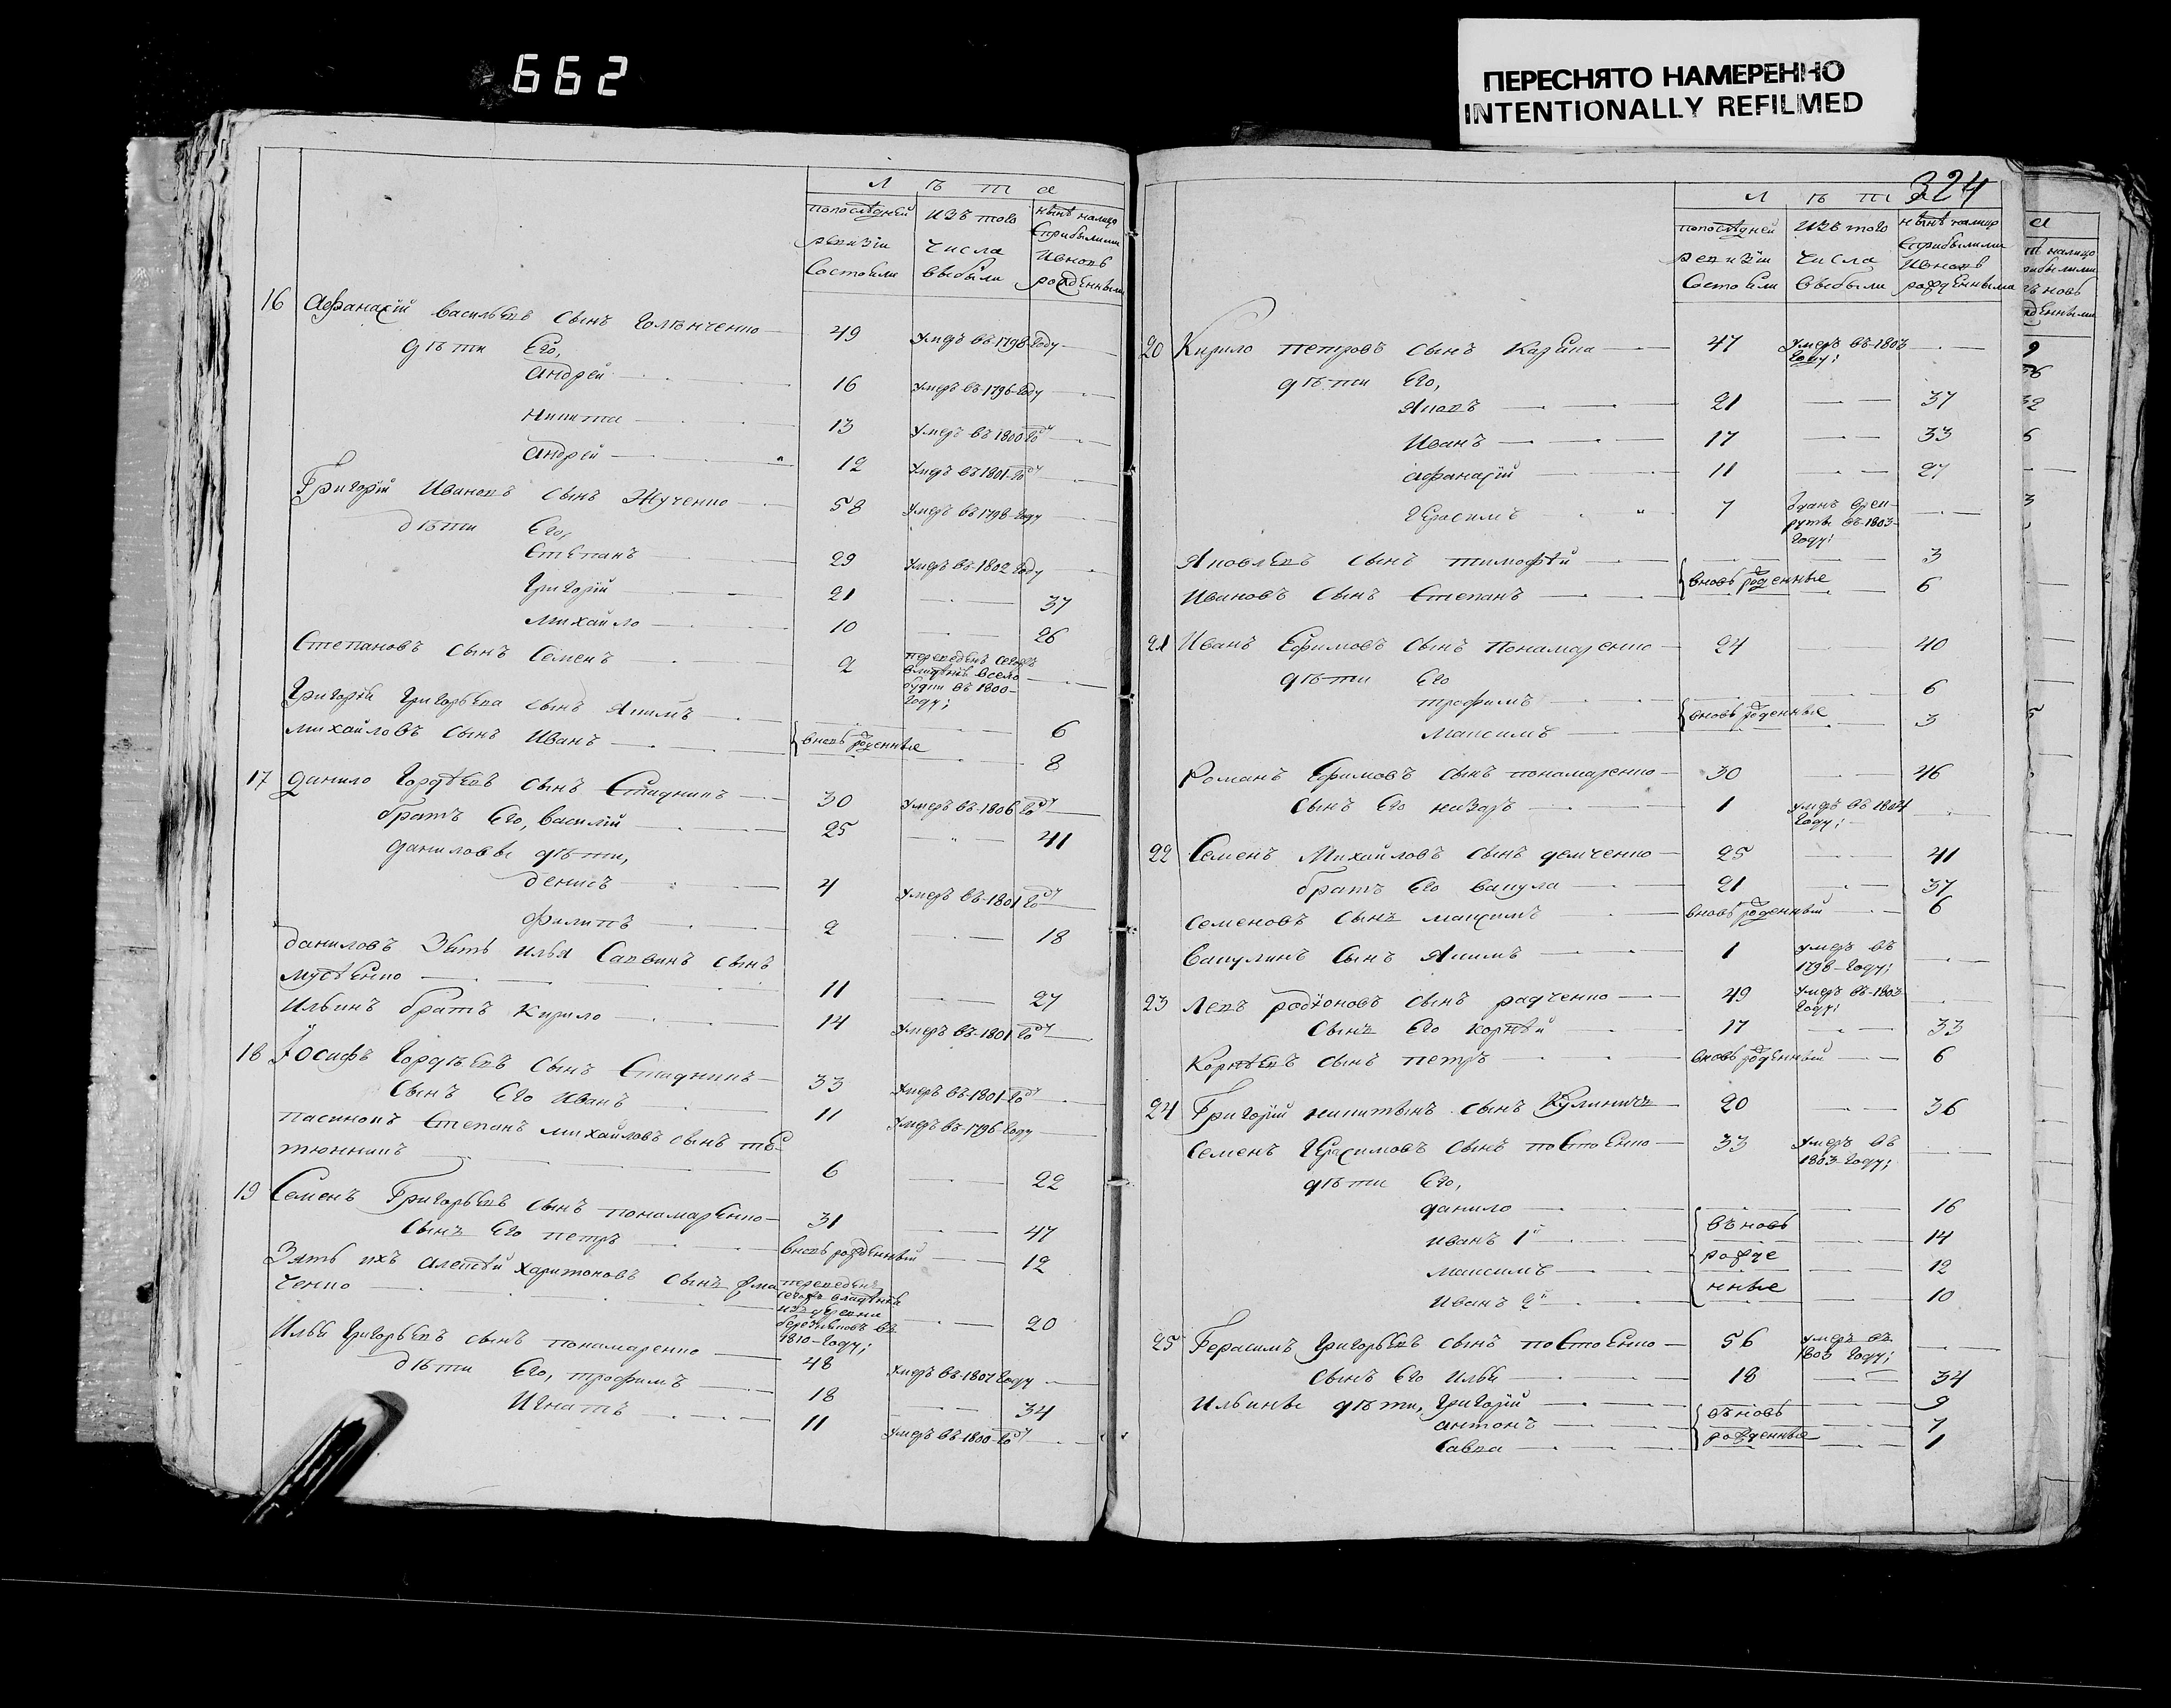 662
ПЕРЕСНЯТО НАМЕРЕННО
INTENTIONALLY REFILMED
Л ѣ т а
попослѣдней ревизіи состояли
изъ того числа выбыли
нынѣ налицо
16 Афанасій васильевъ сынъ 49 умеръ въ 1798 году
дѣти Его,
андрей 16 умеръ въ 1796 году
никита 13 умеръ въ 1800 году
андрей 12 умеръ въ 1801 году
Григорій Ивановъ сынъ Жученко 58 умеръ въ 1798 году
дѣти Его,
Степанъ 29 умеръ въ 1802 году
григорій 21 37
михайло 10 26
Степановъ сынъ Семенъ 2 въ 1800 году;
Григорія григорьева сынъ Якимъ 6
михайловъ сынъ Иванъ вновь рожденные 8
17 данило гордѣевъ сынъ 30 умеръ въ 1806 году
братъ Его, василій 25 41
даниловы дѣти,
денисъ 4 умеръ въ 1801 году
филипъ 2 18
даниловъ Зять илья Саввинъ сынъ
11 27
Ильинъ братъ Кирило 14 умеръ въ 1801 году
18 Іосифъ гордѣевъ сынъ 33 умеръ въ 1801 году
Сынъ Его Иванъ 11 умеръ въ 1796 году
пасинокъ Степанъ михайловъ сынъ
6 22
19 Семенъ Григорьевъ сынъ пономаренко 31 47
Сынъ Его петръ вновь рожденный 12
Зять ихъ алексѣй харитоновъ сынъ
ченко 20
въ 1810 году;
Илья григорьевъ сынъ пономаренко 48 умеръ въ 1807 году
дѣти Его, трофимъ 18 34
Игнатъ 11 умеръ въ 1800 году
324
Л ѣ т
попослѣдней ревизіи состояли
изъ того числа выбыли
нынѣ налицо
20 Кирило петровъ сынъ 47 умеръ въ 1803 году;
дѣти Его,
Яковъ 21 37
Иванъ 17 33
афанасій 11 27
Герасимъ 7 въ 1803 году;
Яковлевъ сынъ тимофѣй 3
вновь рожденные
Ивановъ сынъ Степанъ 6
21 Иванъ Ефимовъ сынъ Понамаренко 24 40
дѣти Его
трофимъ 6
вновь рожденные
максимъ 3
Романъ Ефимовъ сынъ понамаренко 30 46
Сынъ Его назаръ 1 умеръ въ 1804 году;
22 Семенъ Михайловъ сынъ демченко 25 41
братъ Его вакула 21 37
Семеновъ сынъ максимъ вновь рожденный 6
Вакулинъ сынъ Якимъ 1 умеръ въ 1798 году;
23 Левъ родіоновъ сынъ радченко 49 умеръ въ 1803 году;
Сынъ Его корнѣй 17 33
Корнѣевъ сынъ петръ вновь рожденный 6
24 Григорій никитинъ сынъ Кулиничъ 20 36
Семенъ Герасимовъ сынъ 33 умеръ въ 1803 году;
дѣти Его,
данило 16
иванъ 1й въновь 14
максимъ рожде 12
иванъ 2й нные 10
25 Герасимъ григорьевъ сынъ 56 умеръ въ 1803 году;
Сынъ Его Илья 18 34
Ильины дѣти, григорій 9
антонъ въновь 7
Савва рожденные 1